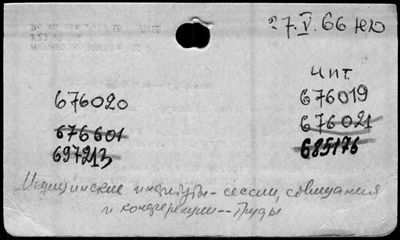 27.V.66 НЮ
Чит.
676020 676019
676601 676021
697213 685175
Медицинские институты - сессии, совещания
и конференции -- Труды